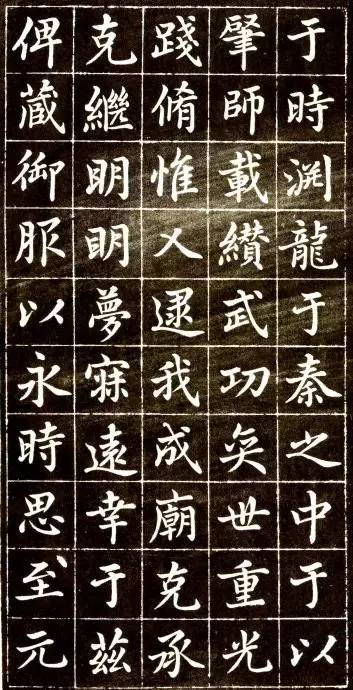 于時渕龍于秦之中于以
肇師載纘武功奕世重光
踐脩惟乂逮我成廟克承
克繼明明夢寐遠幸于茲
俾蔵御服以永時思至元